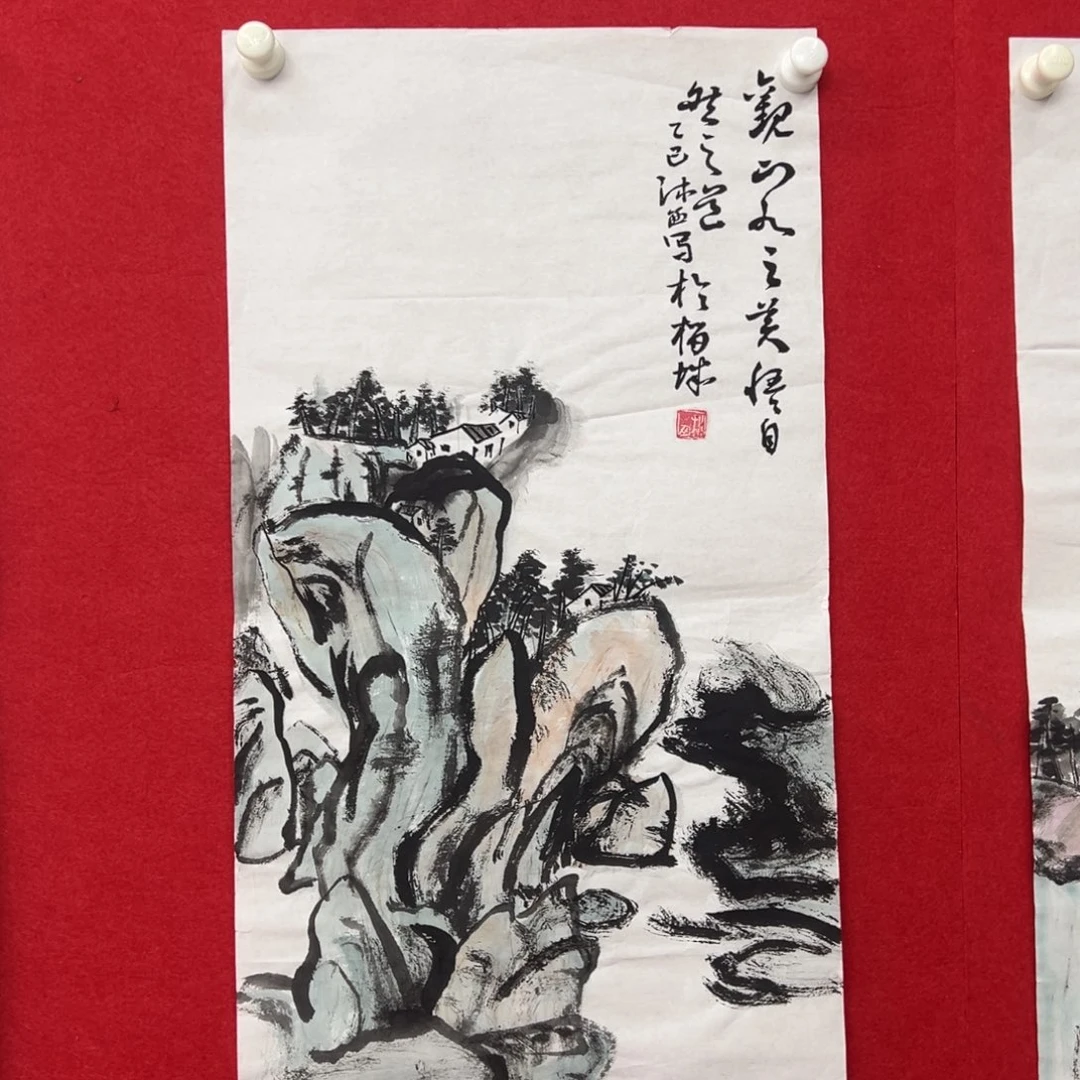 觀山水之美悟自
然之道
乙巳沐西写於柏城